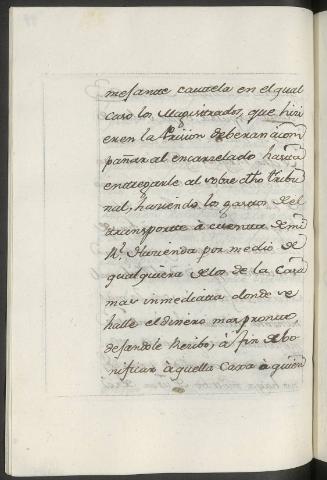 mesante cautela en el qual
caso los Magistrados, que hici
eren la Prision deberan acom
pañar al encarcelado hasta
entregarle al sobre dho tribu
nal, haciendo los gastos del
transporte à cuenta de mi
Rl. Hacienda por medio de
qualquiera de los de la Caxa
mas inmediata donde se
halle el dinero mas pronto
dejandole Recibo, à fin de bo
nificar à aquella Caxa à quien